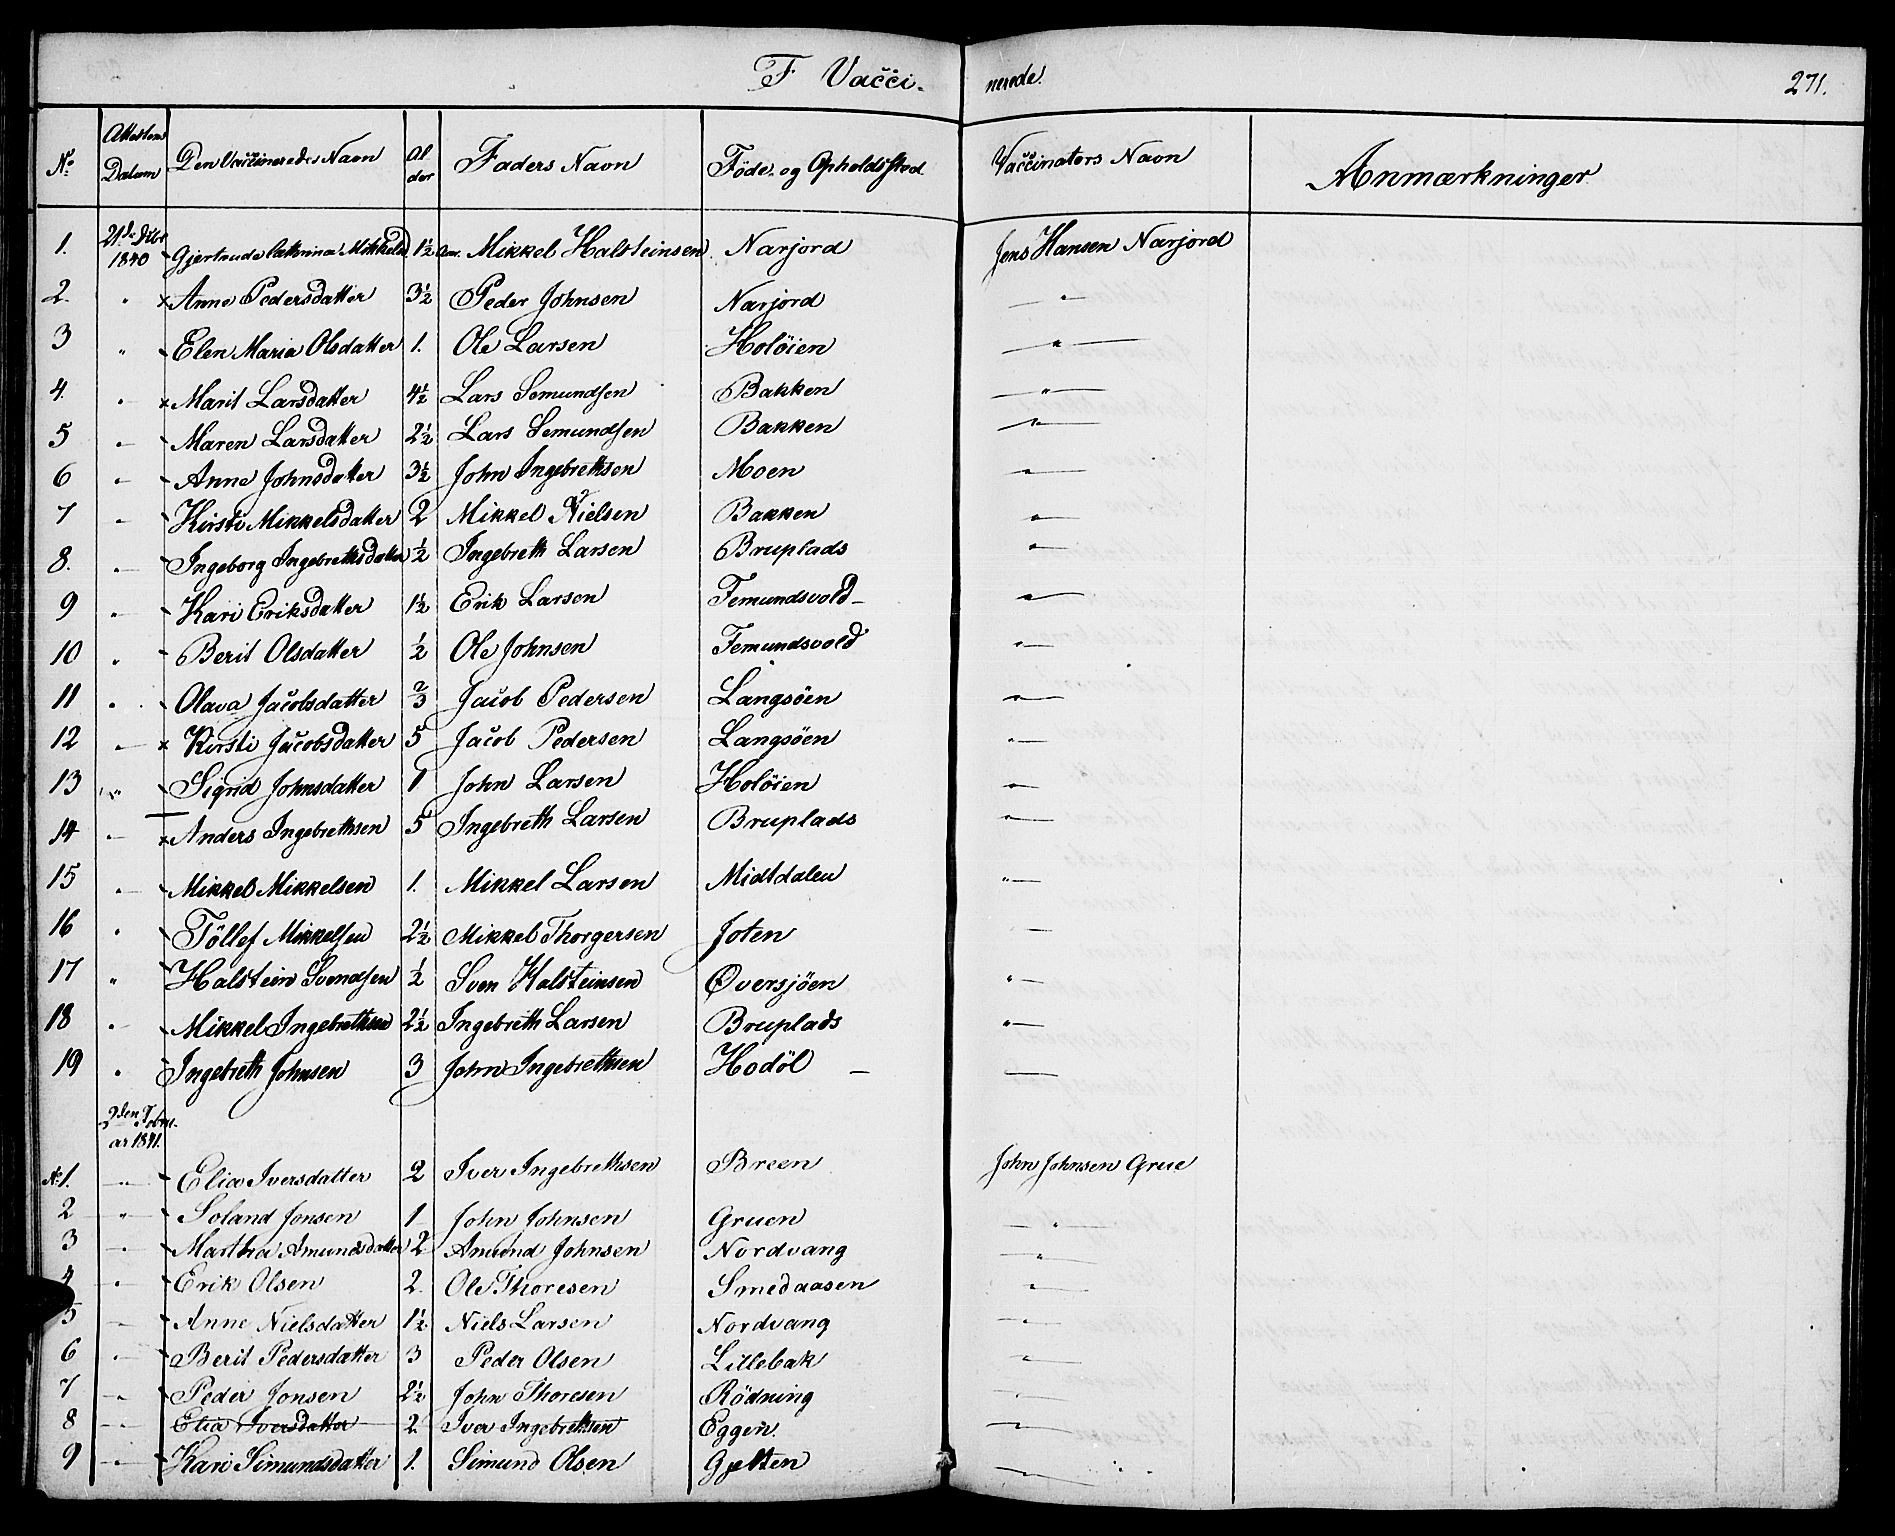 F Vacci- nerede. 271.
No Attestens Datum Den Vaccineredes Navn Al der Faders Navn Föde- og Opholdssted Vaccinators Navn Anmærkninger
1. 21de Dbr 1840 Gjertrude Cathrina Mikkelsd. 1½ Mikkel Halsteinsen Narjord Jens Hansen Narjord
2. " x Anne Pedersdatter 3½ Peder Johnsen Narjord — " —
3 " Elen Maria Olsdatter 1. Ole Larsen Holöien — " —
4. " x Marit Larsdatter 4½ Lars Semundsen Bakken — " —
5 " Maren Larsdatter 2½ Lars Semundsen Bakken — " —
6 " Anne Johnsdatter 3½ John Ingebrethsen Moen — " —
7 " Kirsti Mikkelsdatter 2 Mikkel Nielsen Bakken " —
8. " Ingeborg Ingebrethsdatter ½ Ingebreth Larsen Bruplads " —
9 " Kari Eriksdatter 1½ Erik Larsen Femundsvold — " —
10 " Berit Olsdatter ½ Ole Johnsen Femundsvold " —
11 " Olava Jacobsdatter ⅔ Jacob Pedersen Langsöen " —
12 " x Kirsti Jacobsdatter 5 Jacob Pedersen Langsöen " —
13 " Sigrid Johnsdatter 1 John Larsen Holöien " —
14 " x Anders Ingebrethsen 5 Ingebreth Larsen Bruplads " —
15 " Mikkel Mikkelsen 1. Mikkel Larsen Midtdalen " —
16 " Töllef Mikkelsen 2½ Mikkel Thorgersen Joten —
17 " Halstein Svendsen ½ Sven Halsteinsen Øversjöen " —
18 " Mikkel Ingebrethsen 2½ Ingebreth Larsen Bruplads " —
19 " Ingebreth Johnsen 3 John Ingebrethsen Hodöl — —
2den Febru-
ar 1841.
No 1. " Elia Iversdatter 2 Iver Ingebrethsen Breen John Johnsen Grue
2 " Soland Jonsen 1 John Johnsen Gruen — " —
3 " Martha Amundsdatter 2 Amund Johnsen Nordvang " —
4 " Erik Olsen 2. Ole Thoresen Smedaasen " —
5 — Anne Nielsdatter 1½ Niels Larsen Nordvang " —
6 " Berit Pedersdatter 3 Peder Olsen Lillebak " —
7 " Peder Jonsen 2½ John Thoresen Rödning " —
8 " Elia Iversdatter 2. Iver Ingebrethsen Eggen. " —
9 " Kari Simundsdatter 1. Simund Olsen Gjelten " —